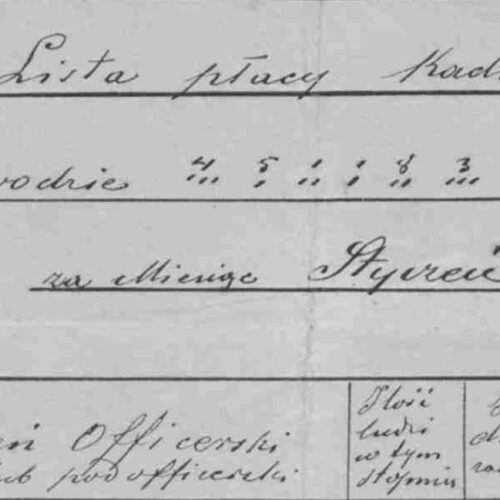 Lista płacy Kad
wodzie 4 5 1 1 8 3
za Miesiąc Styczeń
eń Officerski
lub podofficerski
Ilość
ludzi
w tym
stopniu